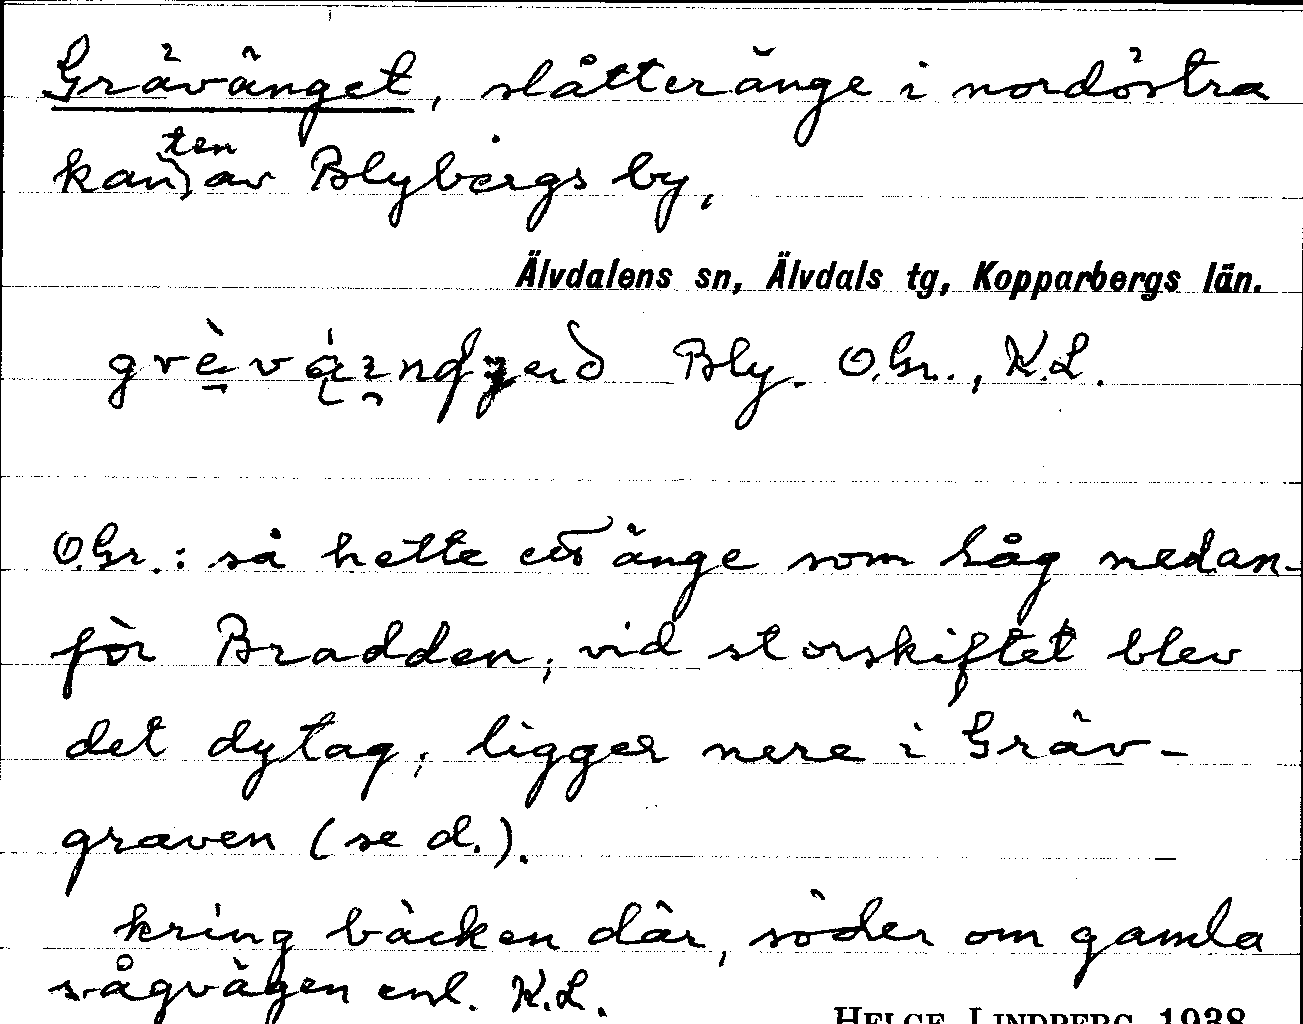 Grävänget, slåtteränge i nordöstra
kanten av Blybergs by,
Älvdalens sn, Älvdals tg, Kopparbergs län.
Bly. O.Gr., K.L.
O.Gr.: så hette ett änge som låg nedan-
för Bradden, vid storskiftet blev
det dytag, ligger nere i Gräv-
graven (se d.).
kring bäcken där, söder om gamla
sågvägen enl. K.L.
HELGE LINDBERG 1938